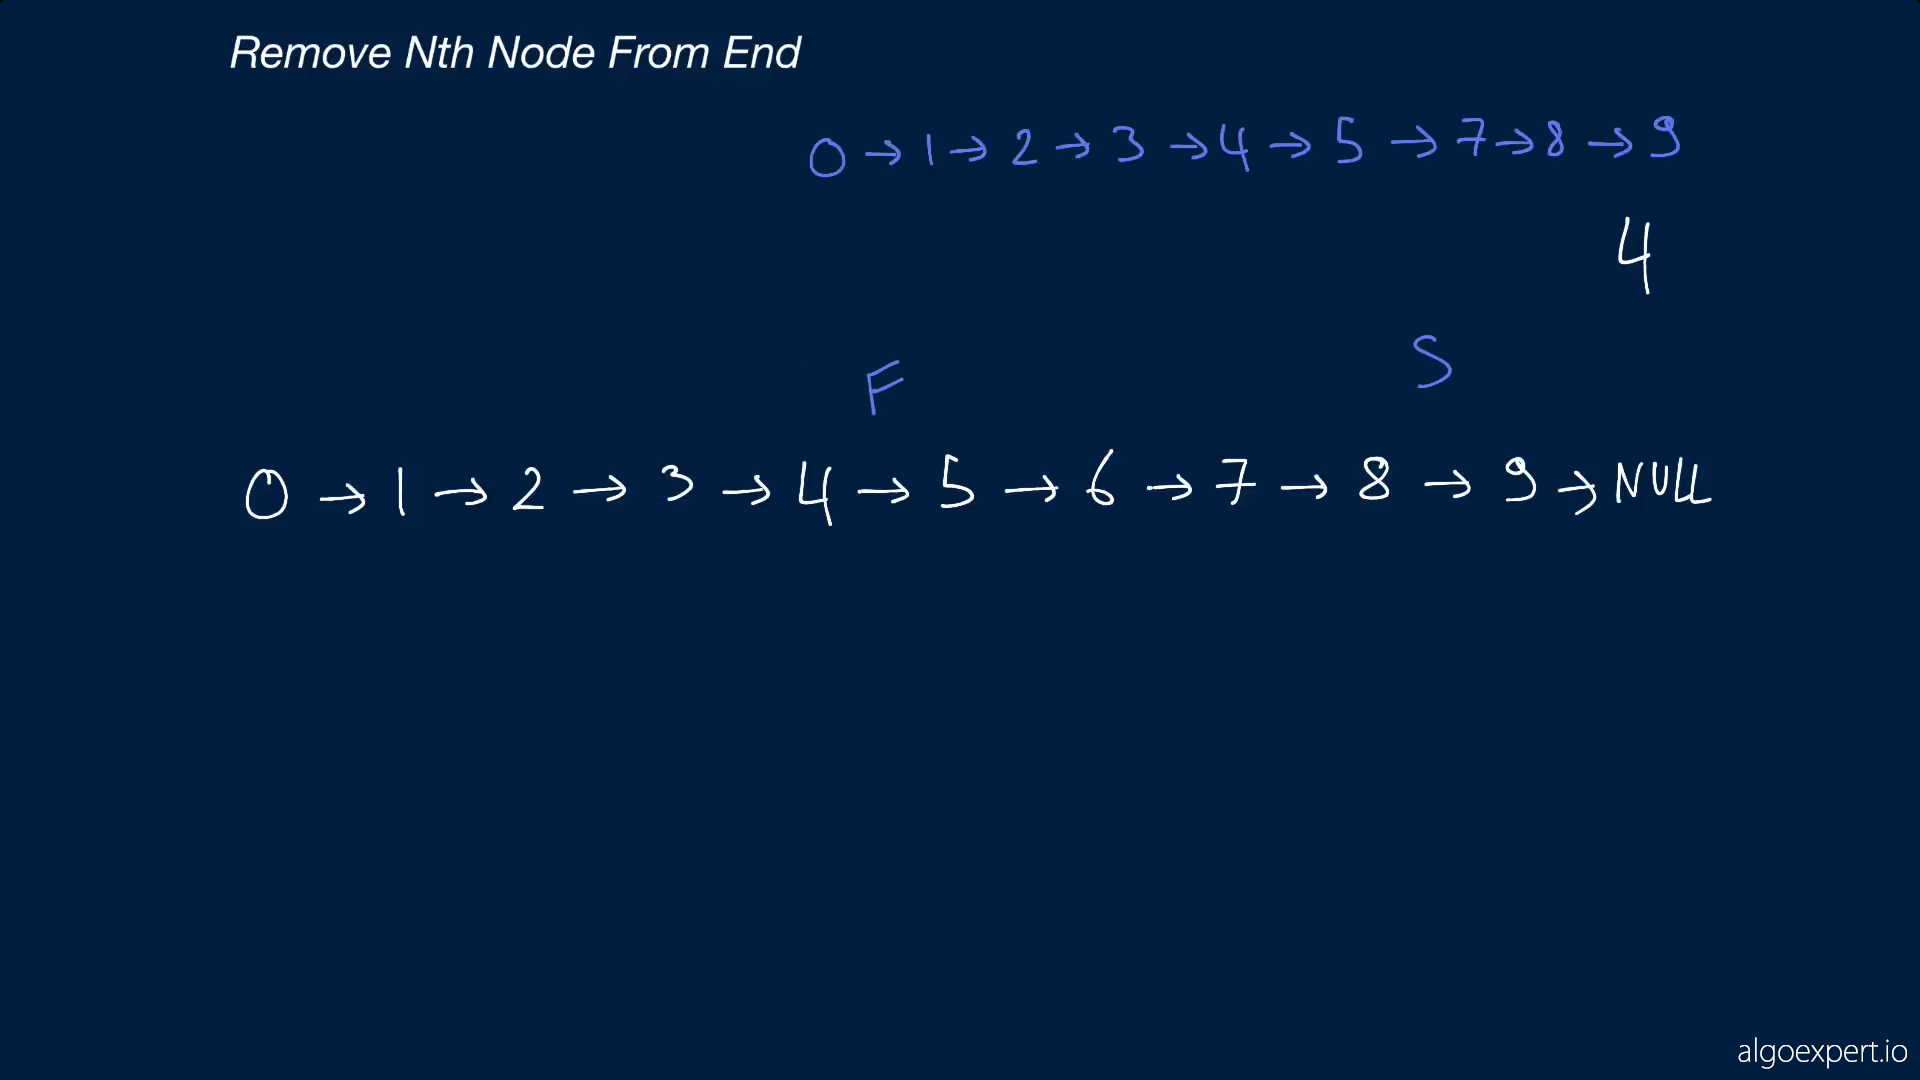 Remove Nth Node From End
0 → 1 → 2 → 3 → 4 → 5 → 7 → 8 → 9
4
F S
0 → 1 → 2 → 3 → 4 → 5 → 6 → 7 → 8 → 9 → NULL
algoexpert.io